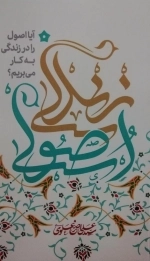 آیا اصول
را در زندگی
به کار
می‌بریم؟
زندگی
اصولی